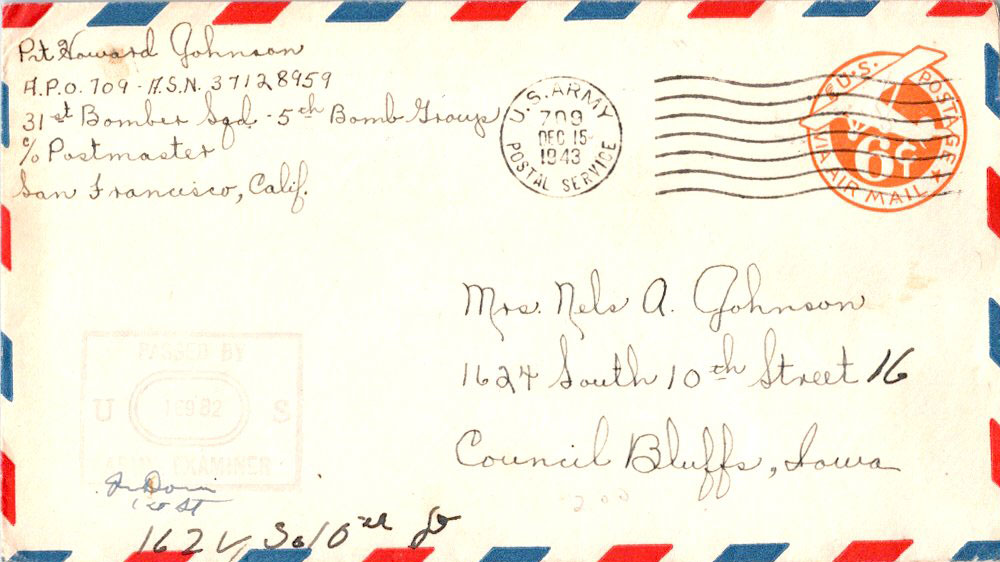 Pvt Howard Johnson
A.P.O. 709 - A.S.N. 37128959
31st Bomber Sqd - 5th Bomb Group
c/o Postmaster
San Francisco, Calif.
U.S. ARMY
709
DEC 15
1943
POSTAL SERVICE
U.S. POSTAGE
6¢
VIA AIR MAIL
Mrs. Nels A. Johnson
1624 South 10th Street 16
Council Bluffs, Iowa
PASSED BY
U S
ARMY EXAMINER
1st Lt